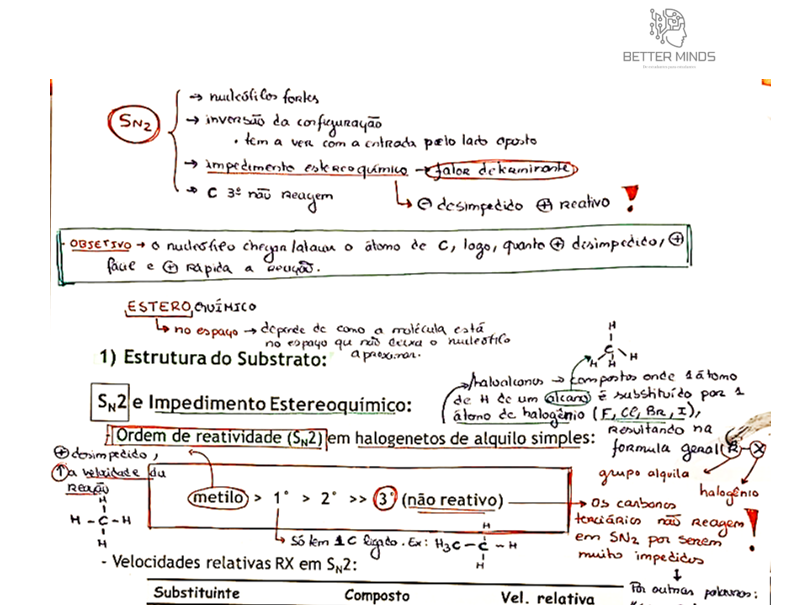 BETTER MINDS
SN2
→ nucleófilos fortes
→ inversão da configuração
• tem a ver com a entrada pelo lado oposto
→ impedimento estereoquímico → fator determinante
→ C 3º não reagem
↳ ⊖ desimpedido ⊕ reativo !
OBJETIVO → o nucleófilo chegar/atacar o átomo de C, logo, quanto ⊕ desimpedido, ⊕
fácil e ⊕ rápida a reação.
ESTEREOQUÍMICO
↳ no espaço → depende de como a molécula está
no espaço que não deixa o nucleófilo
aproximar.
1) Estrutura do Substrato:
H
C
H H H
haloalcanos → compostos onde 1 átomo
de H de um alcano é substituído por 1
átomo de halogênio (F, Cl, Br, I),
resultando na
formula geral R-X
grupo alquila
halogênio
SN2 e Impedimento Estereoquímico:
Ordem de reatividade (SN2) em halogenetos de alquilo simples:
⊕ desimpedido,
↑ a velocidade da
reação
H
H - C - H
H
metilo > 1° > 2° >> 3° (não reativo)
→ Os carbonos
terciários não reagem
em SN2 por serem
muito impedidos !
↳ Só tem 1 C ligado. Ex: H3C - C - H
H
H
- Velocidades relativas RX em SN2:
Por outras palavras:
Substituinte Composto Vel. relativa